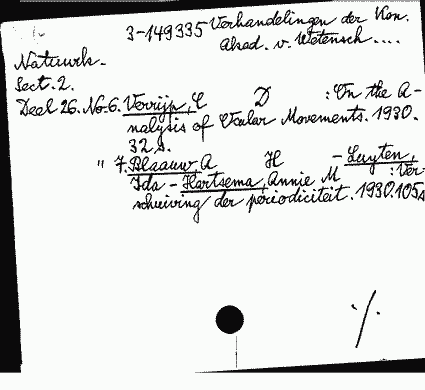 3-149335 Verhandelingen der Kon.
Akad. v. Wetensch....
Natuurk.
Sect. 2.
Deel 26. No. 6. Verrijp, C D : On the A-
nalysis of Ocular Movements. 1930.
32 s.
" 7. Blaauw, A H - Luyten,
Ida - Hartsema, Annie M : Ver-
schuiving der periodiciteit. 1930. 105 s